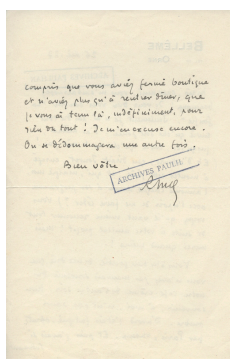 compris que vous aviez fermé boutique
et n'aviez plus qu'à rentrer dîner, que
je vous ai tenu là, indéfiniment, pour
rien du tout ! Je m'en excuse encore.
On se dédommagera une autre fois.
Bien vôtre
ARCHIVES PAULH